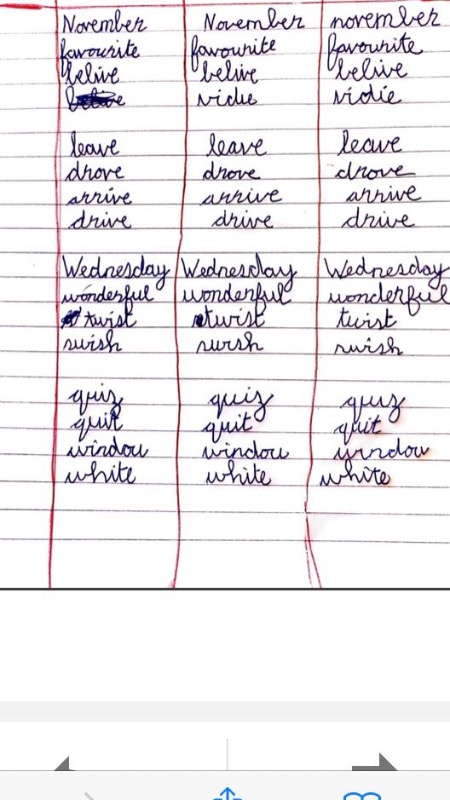 November November november
favourite favourite favourite
belive belive belive
vidie vidie
leave leave leave
drove drove drove
arrive arrive arrive
drive drive drive
Wednesday Wednesday Wednesday
wonderful wonderful wonderful
twist twist twist
swish swish swish
quiz quiz quiz
quit quit quit
window window window
white white white